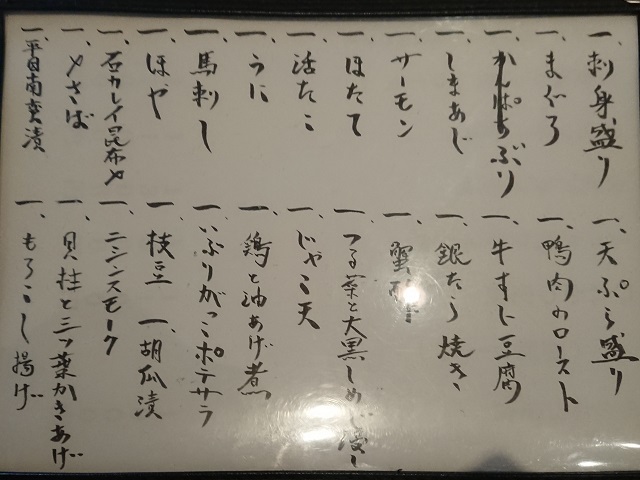 一、刺身盛り
一、まぐろ
一、かんぱちぶり
一、しまあじ
一、サーモン
一、ほたて
一、活たこ
一、うに
一、馬刺し
一、ほや
一、石カレイ昆布〆
一、〆さば
一、平目南蛮漬
一、天ぷら盛り
一、鴨肉のロースト
一、牛すじ豆腐
一、銀たら焼き
一、蟹
一、つる菜と大黒しめじ浸し
一、じゃこ天
一、鶏と油あげ煮
一、いぶりがっこポテサラ
一、枝豆 一、胡瓜漬
一、ニシンスモーク
一、貝柱と三ッ葉かきあげ
一、もろこし揚げ